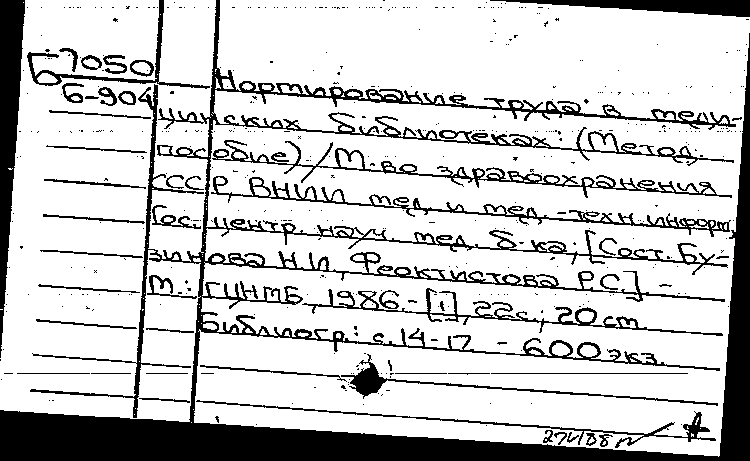 Б 7050
Б-904
Нормирование труда в меди-
цинских библиотеках: (Метод.
пособие) / М-во здравоохранения
СССР, ВНИИ мед. и мед.-техн. информ.,
Гос. центр. науч. мед. б-ка; [Сост. Бу-
зинова Н.И., Феоктистова Р.С.]. -
М.: ГЦНМБ, 1986. - [1], 22 с.; 20 см.
Библиогр.: с. 14-17. - 600 экз.